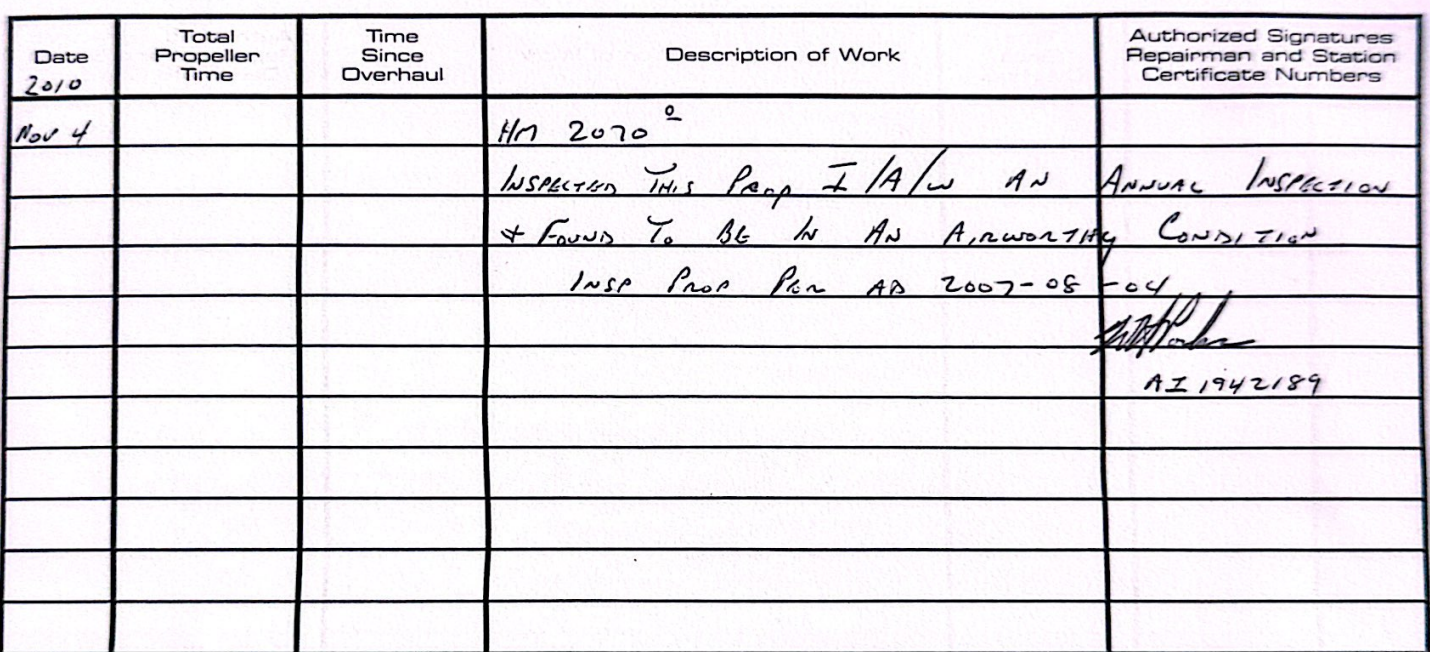 Date
2010
Total
Propeller
Time
Time
Since
Overhaul
Description of Work
Authorized Signatures
Repairman and Station
Certificate Numbers
Nov 4
HM 2070 º
INSPECTED THIS PROP I/A/W AN ANNUAL INSPECTION
& FOUND TO BE IN AN AIRWORTHY CONDITION
INSP PROP PER AD 2007-08-04
AI 1942189